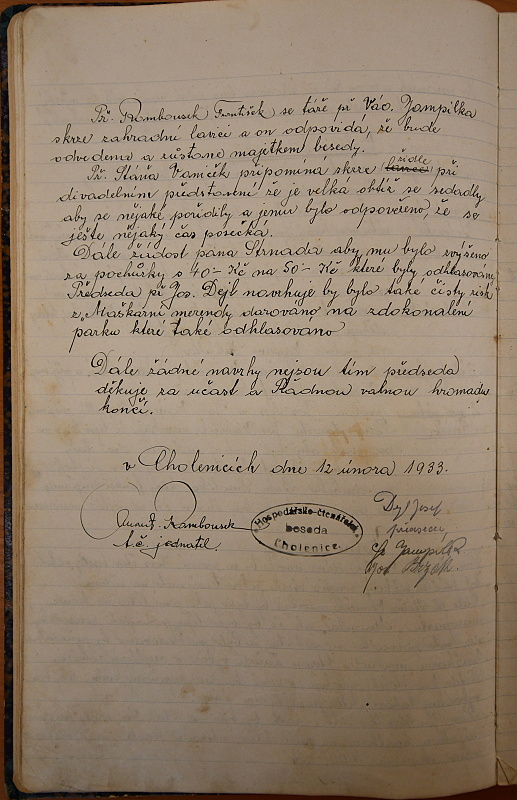 Př. Rambousek František se táže př Vác. Jampilka
skrze zahradní lavci a on odpovídá, že bude
odvedeno a zůstane majetkem besedy.
Př. Stáňa Vaniček připomíná skrze (lavce) židle při
divadelním předstastní že je velká obtíž se sedadly
aby se nějaké pořídily a jemu bylo odpověřeno, že se
ještě nějaký čas posečká.
Dále žádost pana Strnada aby mu bylo zvýšeno
za pochůzky s 40– Kč na 50– Kč které byly odhlasovány
Předseda př. Jos. Dejl navrhuje by bylo také čistý zisk
z „Maškarní merendy darováno na zdokonalení
parku které také odhlasováno
Dále žádné navrhy nejsou tím předseda
děkuje za učast a Řádnou valnou hromadu
končí.
v Cholenicích dne 12 února 1933.
Frant. Rambousek
t. č. jednatel.
Hospodářsko-čtenářská
beseda
Cholenice.
Dyl Josef
předseda
Jampilka
Jos.